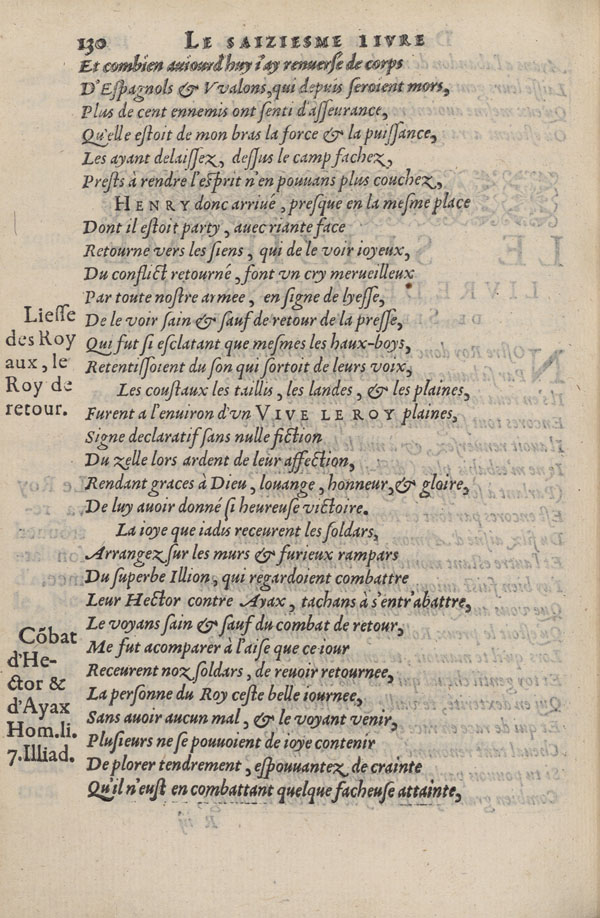 130 LE SAIZIESME LIVRE
Et combien auiourd'huy i'ay renuersé de corps
D'Espagnols & Vvalons, qui depuis seroient mors,
Plus de cent ennemis ont senti d'asseurance,
Qu'elle estoit de mon bras la force & la puissance,
Les ayant delaissez, dessus le camp fachez,
Prests à rendre l'esprit n'en pouuans plus couchez,
HENRY donc arriué, presque en la mesme place
Dont il estoit party, auec riante face
Retourne vers les siens, qui de le voir ioyeux,
Du conflict retourné, font vn cry merueilleux
Par toute nostre armee, en signe de lyesse,
De le voir sain & sauf de retour de la presse,
Qui fut si esclatant que mesmes les haux-boys,
Retentissoient du son qui sortoit de leurs voix,
Les coustaux les taillis, les landes, & les plaines,
Furent a l'enuiron d'vn VIVE LE ROY plaines,
Signe declaratif sans nulle fiction
Du zelle lors ardent de leur affection,
Rendant graces à Dieu, louange, honneur, & gloire,
De luy auoir donné si heureuse victoire.
La ioye que iadis receurent les soldars,
Arrangez sur les murs & furieux rampars
Du superbe Illion, qui regardoient combattre
Leur Hector contre Ayax, tachans à s'entr'abattre,
Le voyans sain & sauf du combat de retour,
Me fut acomparer à l'aise que ce iour
Receurent noz soldars, de reuoir retournee,
La personne du Roy ceste belle iournee,
Sans auoir aucun mal, & le voyant venir,
Plusieurs ne se pouuoient de ioye contenir
De plorer tendrement, espouuantez de crainte
Qu'il n'eust en combattant quelque facheuse attainte,
Liesse
des Roy
aux, le
Roy de
retour.
Cõbat
d'He-
ctor &
d'Ayax
Hom.li.
7.Illiad.